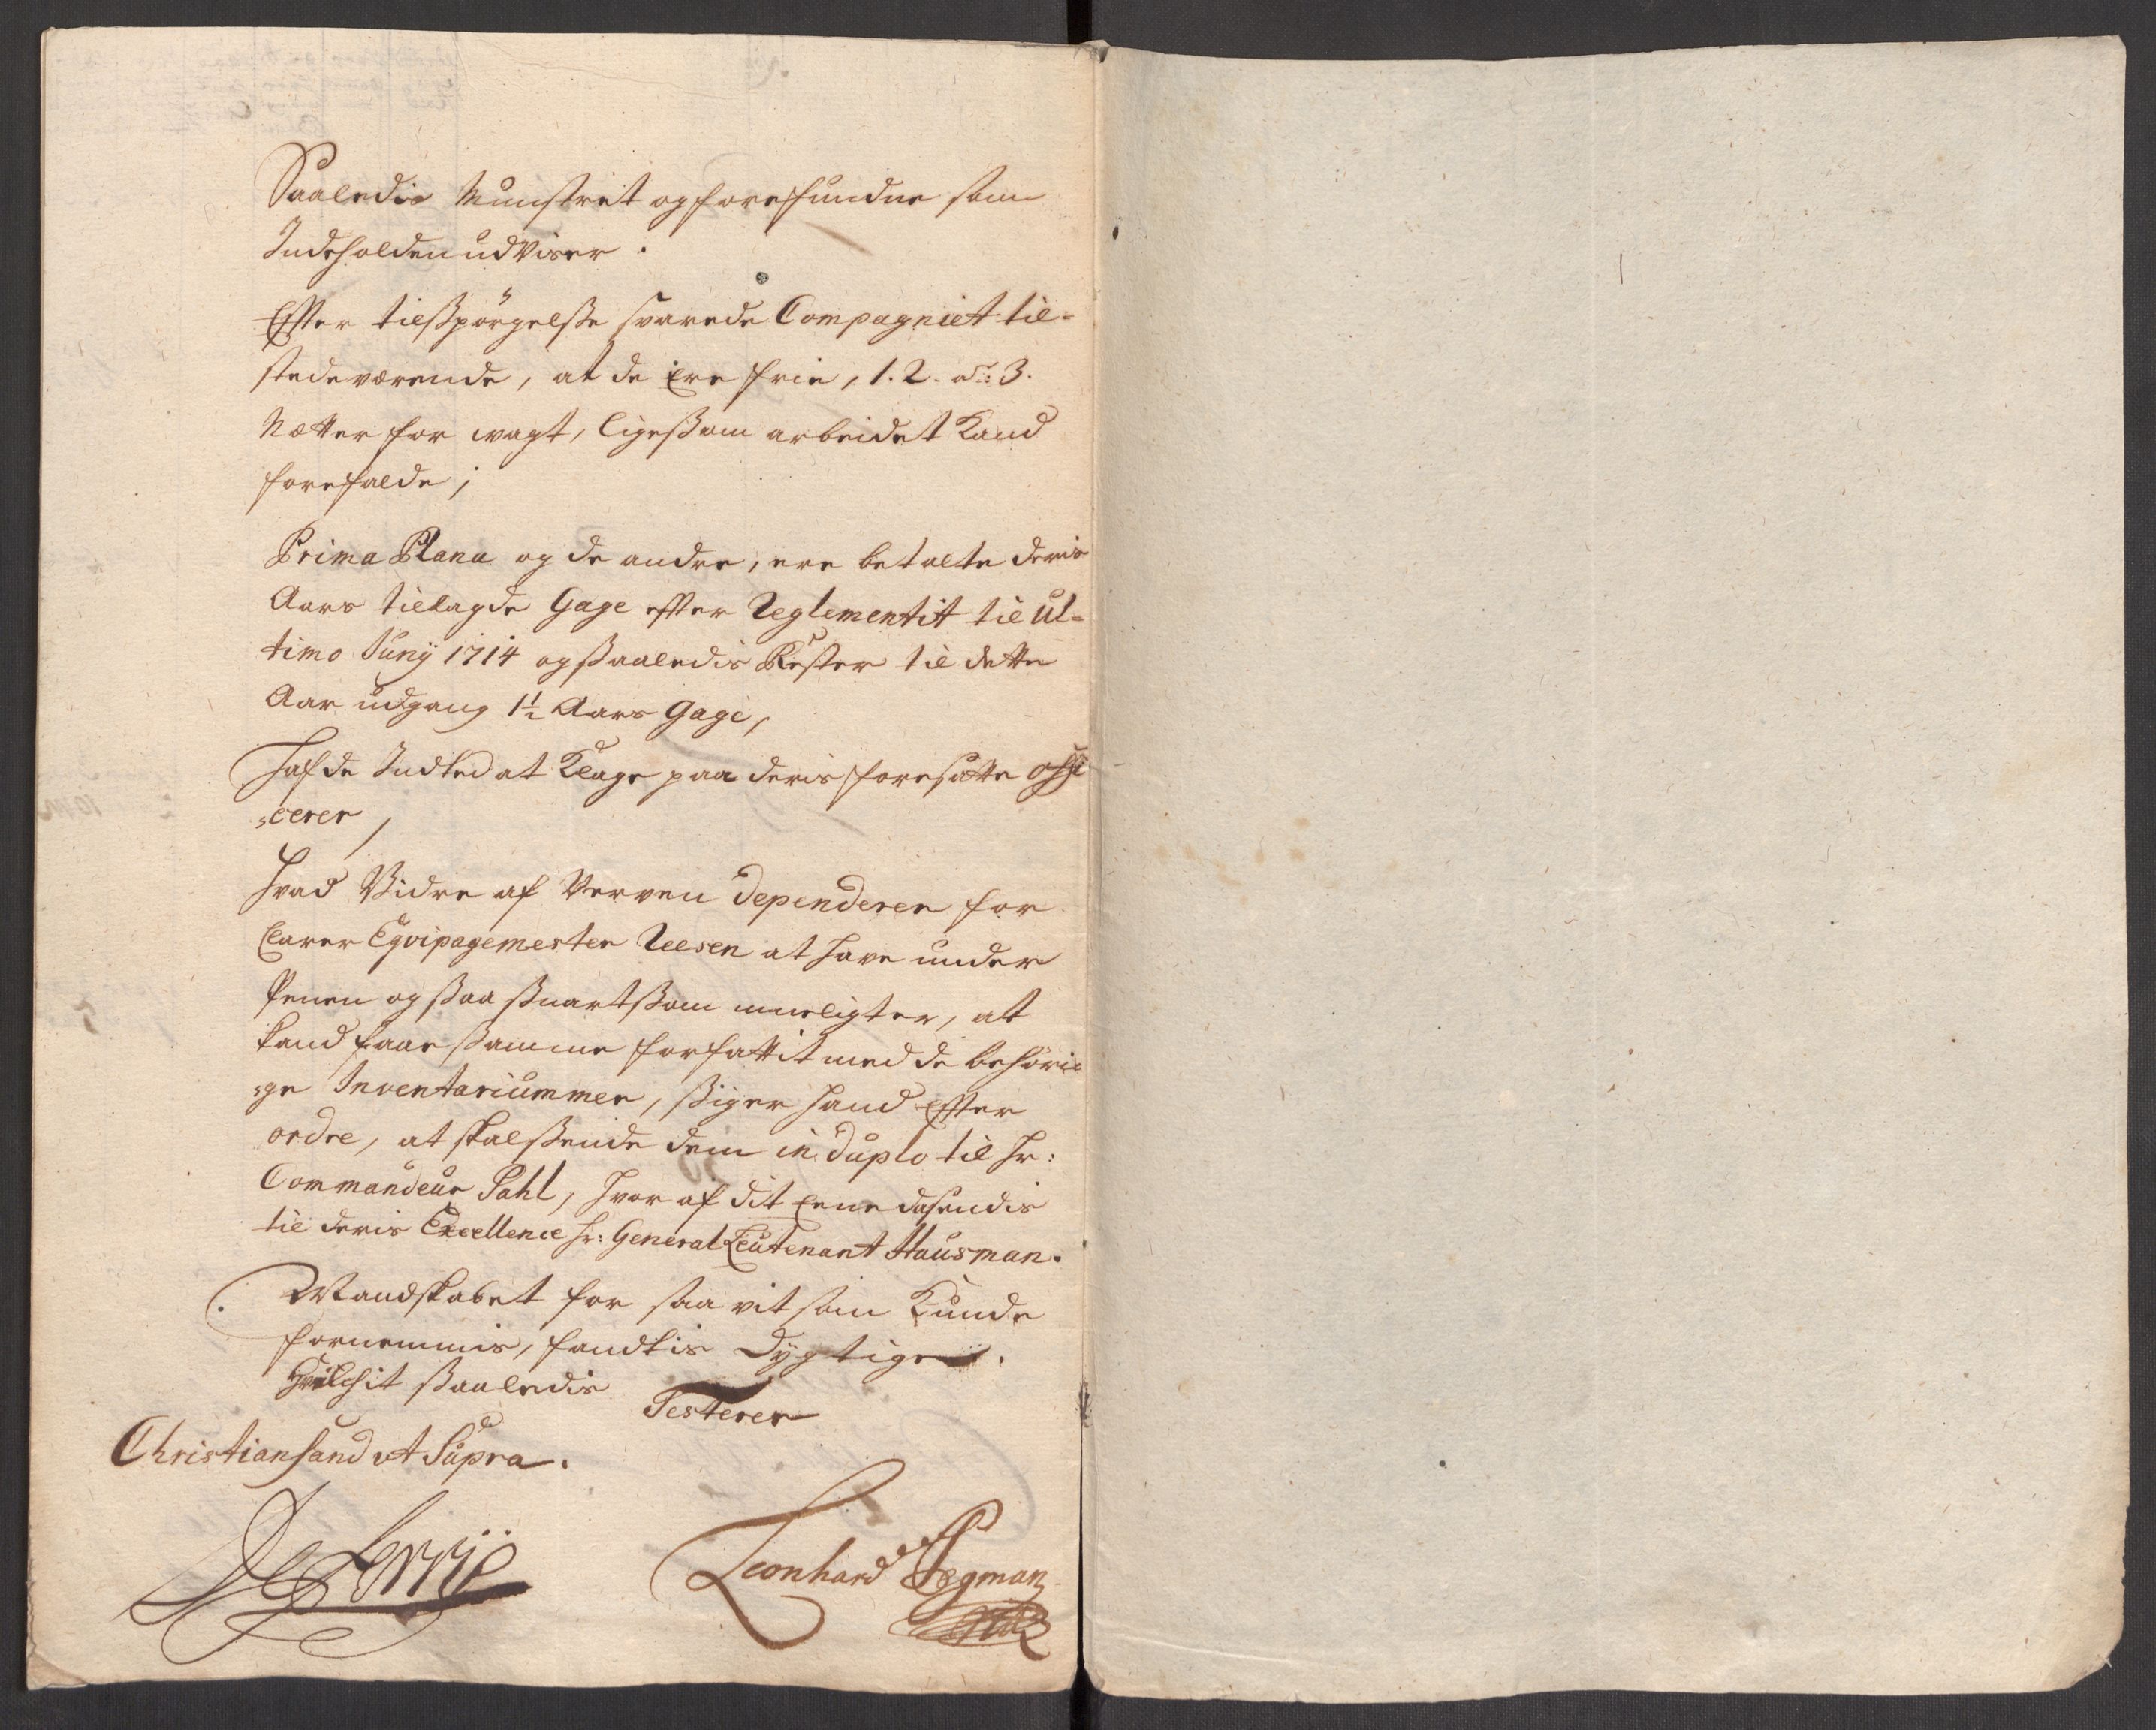 Saaledis Munstret og forefundne som
Indeholden udviser.
Efter tilßpörgelße svarede Compagniet til-
stedeværende, at de ere frie, 1. 2. a: 3.
Nætter for vagt, ligeßom arbeidet kand
forefalde;
Prima Plana og de andre, ere betalte deris
Aars tillagde Gage efter Reglementit til Ul-
timo Junij 1714 og ßaaledis Rester til dette
Aar udgang 1½ Aars Gage,
Hafde Indted at klage paa deris foresatte offi
-cerer,
Hvad Vidre af Verven dependerer for
klarer Eqvipagemester Reesen at have under
Penen og ßaa ßnart ßom mueligt er, at
kand faae ßamme forfattit med de behöri-
-ge Inventariummer, ßiger hand efter
ordre, at skal ßende dem in duplo til Hr:
Commandeur Pahl, hvor af dit eene
til deris Excellence Hr: General Leutenant Hausman.
Mandskabet for saa vit som kunde
fornemmis, fandtis dygtige.
Hvilchit ßaaledis
Testerer
Christiansand ut Supra.
Leonhard Pegman